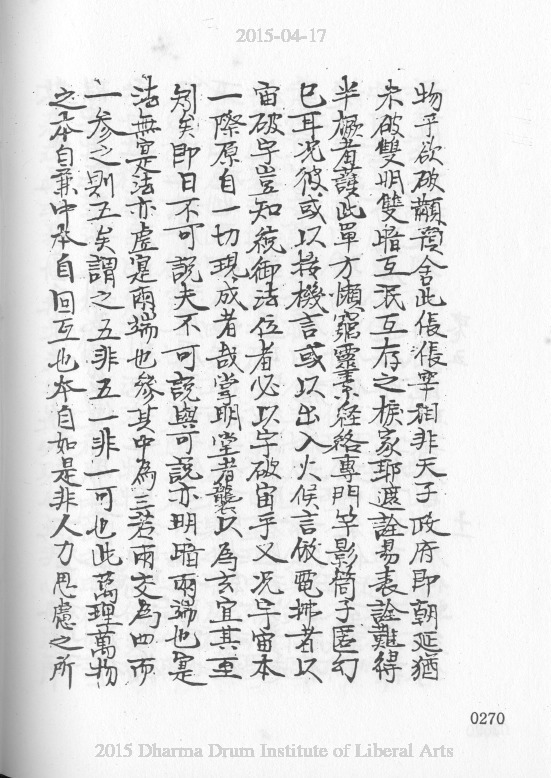 2015-04-17
物乎欲破顢頇舍此倀倀宰相非天子政府即朝廷猶
未破雙明雙暗互泯互存之椳家耶遮詮易表詮難得
半橛者護此單方懶窺靈素経絡專門竿影筒子匿幻
已耳况彼或以接機言或以出入火候言倣電拂者以
宙破宇豈知統御法位者必以宇破宙乎又况宇宙本
一際原自一切現成者哉掌明堂者襲以為玄宜其亜
矣即日不可説夫不可説與可説亦明暗兩端也寔
法無寔法亦虚寔兩端也參其中為三若兩交為四而
一参之則五矣謂之五非五一非一可也此萬理萬物
之本自兼中本自回互也本自如是非人力思慮之所
0270
2015 Dharma Drum Institute of Liberal Arts